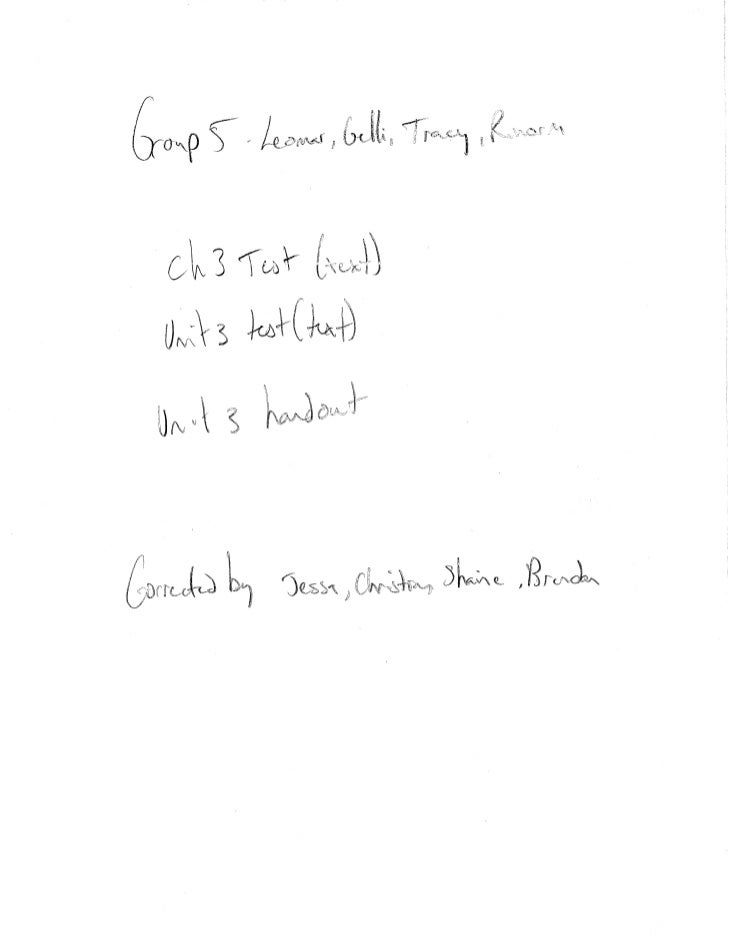 Group 5 - Leomar, Gelli, Tracy,
Ch 3 Test (text)
Unit 3 test (text)
Unit 3 handout
Corrected by Jessa, Christian, Shaine, Brenden